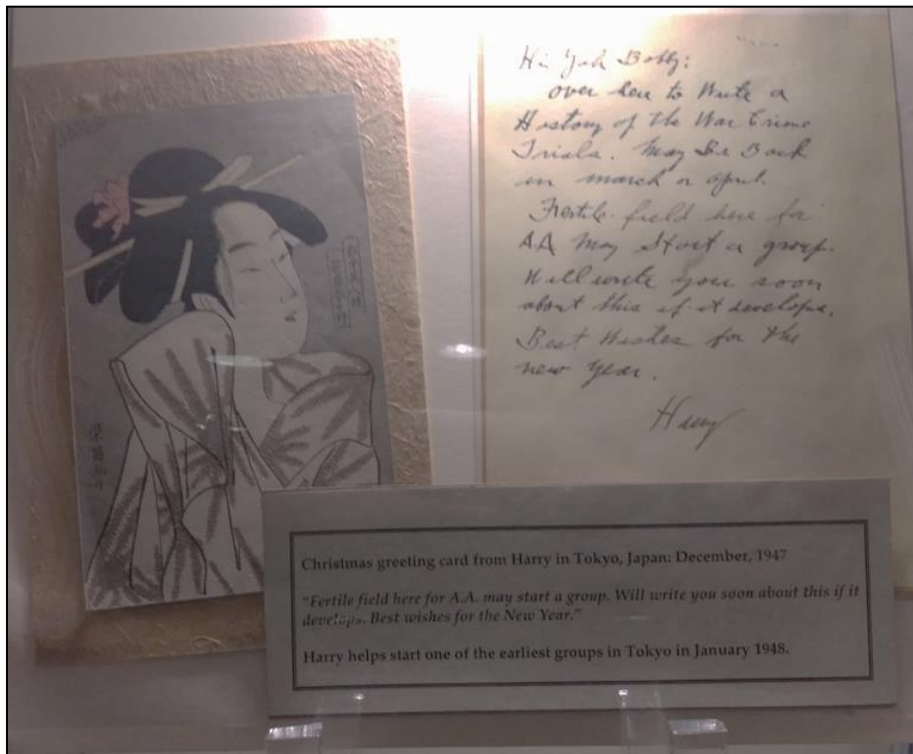 Hi Yah Bobby:
over here to Write a
History of the War Crime
Trials. May Be Back
in march or april.
Fertile field here for
AA May Start a group.
Will write you soon
about this if it develops.
Best Wishes for the
new year.
Harry
Christmas greeting card from Harry in Tokyo, Japan: December, 1947
"Fertile field here for A.A. may start a group. Will write you soon about this if it
develops. Best wishes for the New Year."
Harry helps start one of the earliest groups in Tokyo in January 1948.